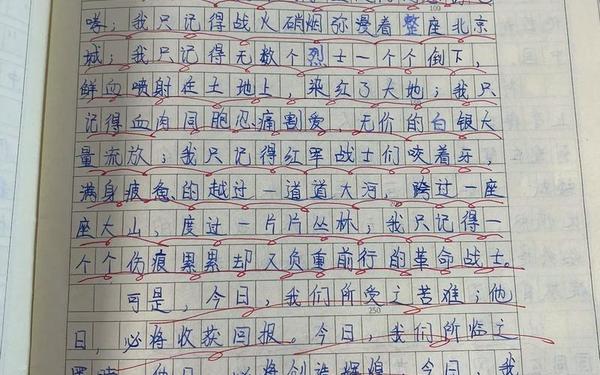 嗥；我只记得战火硝烟弥漫着整座北京
100
城；我只记得无数个烈士一个个倒下，
鲜血喷射在土地上，染红了大地；我只
记得血肉同胞忍痛割爱，无价的白银大
量流放；我只记得红军战士们咬着牙，
满身疲惫的越过一道道大河，跨过一座
座大山，度过一片片丛林；我只记得一
个个伤痕累累却又负重前行的革命战士。
可是，今日，我们所受之苦难；他
250
日，必将收获回报。今日，我们所临之
他日，必将创造辉煌。今日，我